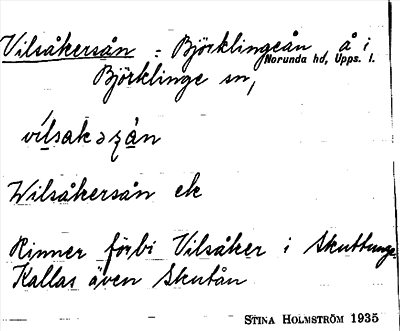 Vilsåkersån = Björklingeån å i
Norunda hd, Upps. l.
Björklinge sn,
Wilsåkersån ek
Rinner förbi Vilsåker i Skuttunge.
Kallas även Skutån
STINA HOLMSTRÖM 1935